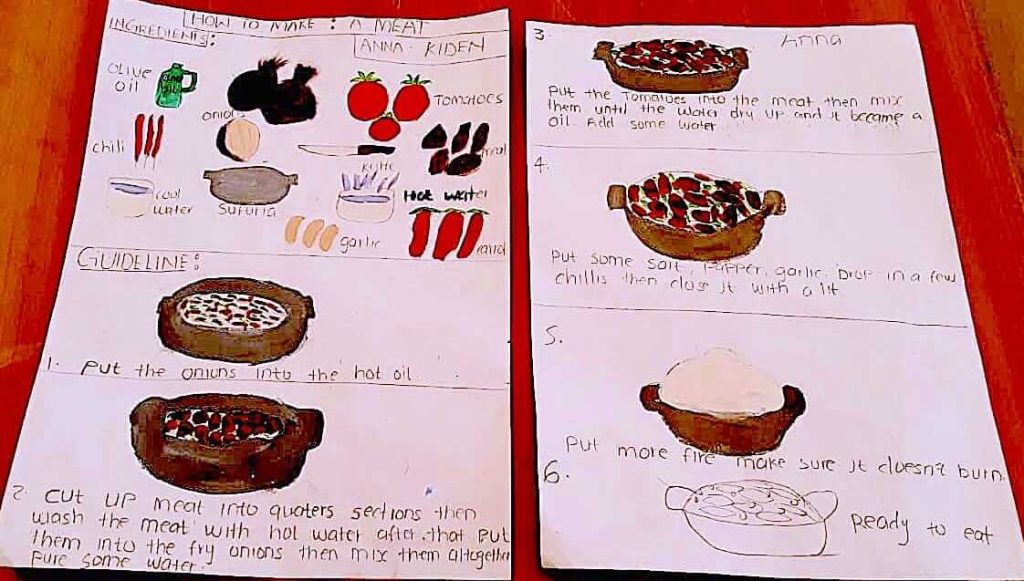 HOW TO MAKE : A MEAT
INGREDIENTS:
ANNA. KIDEN
OLIVE OIL
TOMATOES
ONION
chili
KNIFE
meat
cool water
SUFURIA
Hot water
garlic
GUIDELINE:
1. Put the onions into the hot oil
2. Cut up meat into quaters sections then
wash the meat with hot water after. that put
them into the fry onions then mix them altogether
Pure some water.
3. Anna
Put the Tomatoes into the meat then mix
them until the water dry up and it became a
oil. Add some water
4.
Put some salt, Pepper, garlic. Drop in a few
chillis then close it with a lit
5.
Put more fire make sure it doesn't burn.
6.
Ready to eat